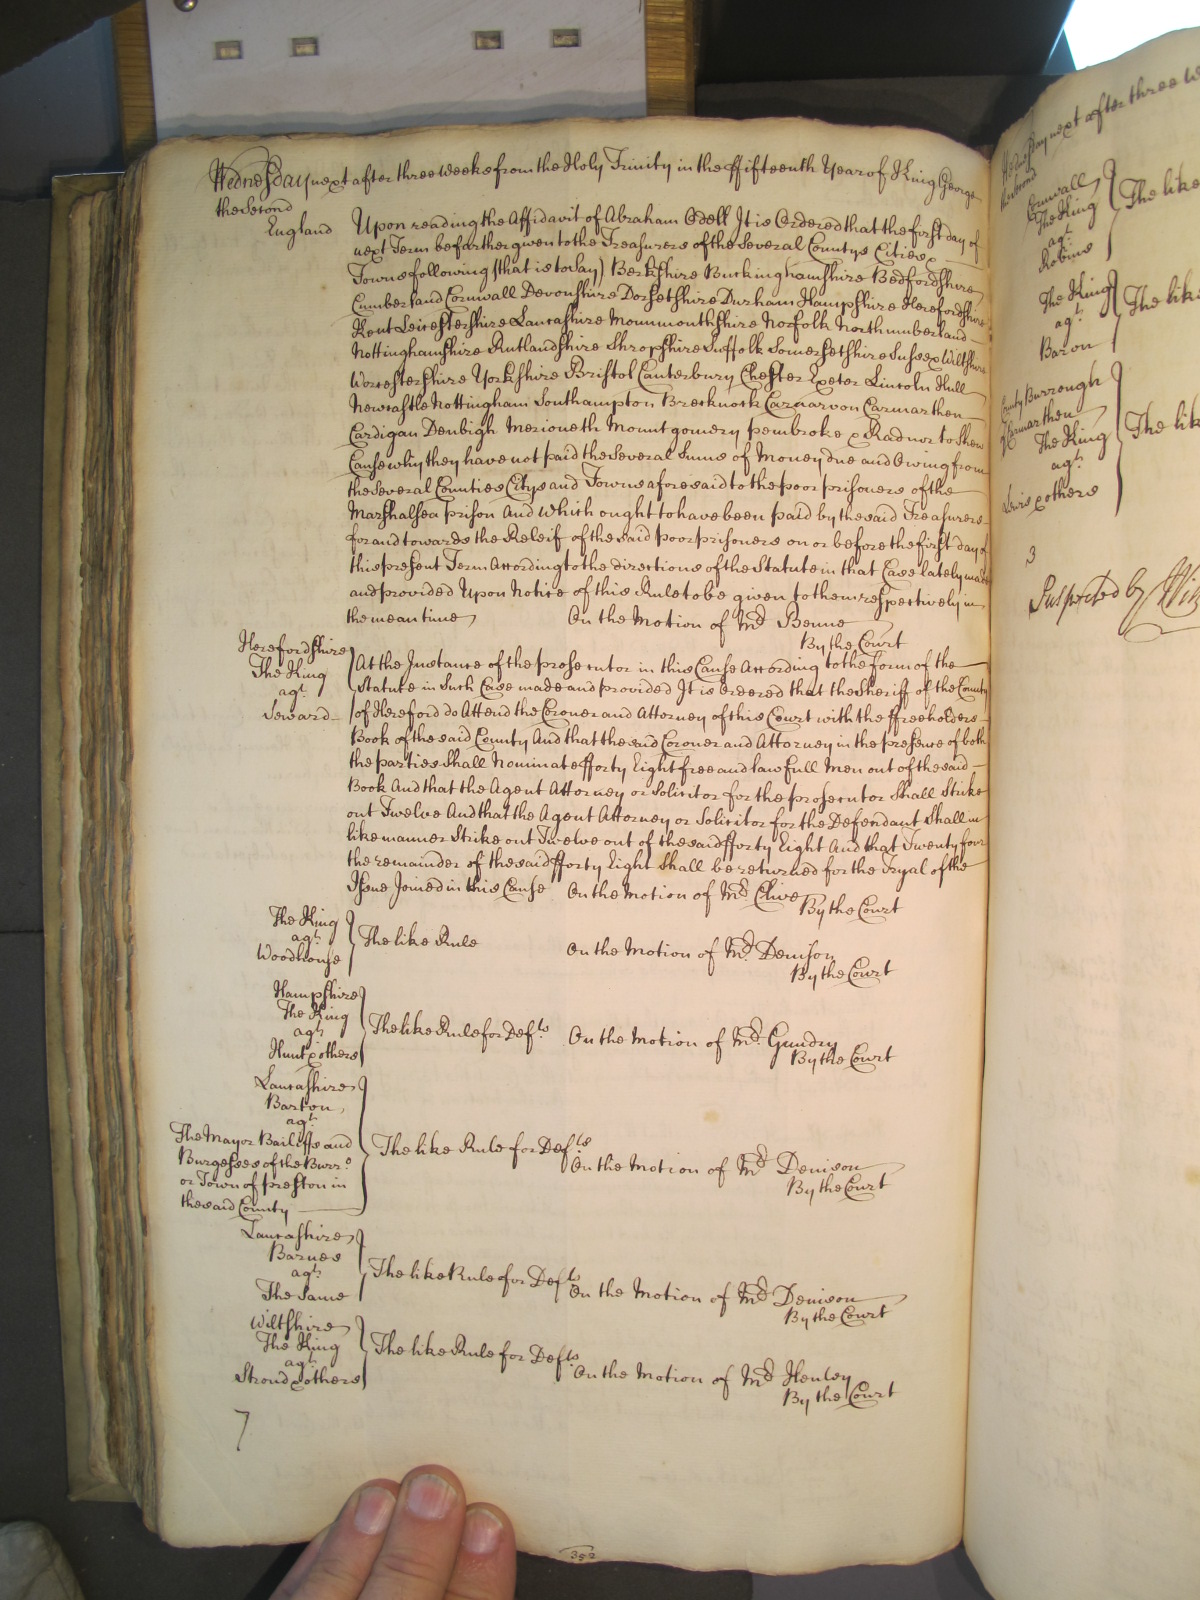 Wednesday next after three weeks from the Holy Trinity in the ffifteenth Year of King George
the Second
England Upon reading the Affidavit of Abraham Odell It is Ordered that the first day of
next Term be farther given to the Treasurers of the Several Countys Cities &
Towns following (that is to say) Berkshire Buckinghamshire Bedfordshire
Cumberland Cornwall Devonshire Dorsetshire Durham Hampshire Herefordshire
Kent Leicestershire Lancashire Monmouthshire Norfolk Northumberland
Nottinghamshire Rutlandshire Shropshire Suffolk Somersetshire Sussex Wiltshire
Worcestershire Yorkshire Bristol Canterbury Chester Exeter Lincoln Hull
Newcastle Nottingham Southampton Brecknock Carnarvon Carmarthen
Cardigan Denbigh Merioneth Montgomery Pembroke & Radnor to Shew
Cause why they have not paid the Several Sums of Money due and Owing from
the Several Counties Citys and Towns aforesaid to the poor prisoners of the
Marshalsea prison And which ought to have been paid by the said Treasurers
for and towards the Releif of the said poor prisoners on or before the first day of
this present Term According to the directions of the Statute in that Case lately made
and provided Upon Notice of this Rule to be given to them respectively in
the mean time On the Motion of Mr. Benne
By the Court
Herefordshire
The King
agt.
Seward
At the Instance of the prosecutor in this Cause According to the form of the
Statute in Such Case made and provided It is Ordered that the Sheriff of the County
of Hereford do Attend the Coroner and Attorney of this Court with the ffreeholders
Book of the said County And that the said Coroner and Attorney in the presence of both
the parties Shall Nominate fforty Eight free and lawfull Men out of the said
Book And that the Agent Attorney or Solicitor for the prosecutor Shall Strike
out Twelve And that the Agent Attorney or Solicitor for the Defendant Shall in
like manner Strike out Twelve out of the said fforty Eight And that Twenty four
the remainder of the said fforty Eight Shall be returned for the Tryal of the
Issue Joined in this Cause On the Motion of Mr. Clive
By the Court
The King
agt.
Woodhouse
The like Rule On the Motion of Mr. Denison
By the Court
Hampshire
The King
agt.
Hunt & others
The like Rule for Defts. On the Motion of Mr. Gundry
By the Court
Lancashire
Barton
agt.
The Mayor Bailiffs and
Burgesses of the Burro.
or Town of Preston in
the said County
The like Rule for Defts.
On the Motion of Mr. Denison
By the Court
Lancashire
Barnes
agt.
The Same
The like Rule for Defts.
On the Motion of Mr. Denison
By the Court
Wiltshire
The King
agt.
Stroud & others
The like Rule for Defts.
On the Motion of Mr. Henley
By the Court
7
352
Wednesday next after three
the Second
Cornwall
The King
agt.
Robins
The like
The King
agt.
Baron
The like
County Burrough
Carmarthen
The King
agt.
Lewis & others
The lik
3